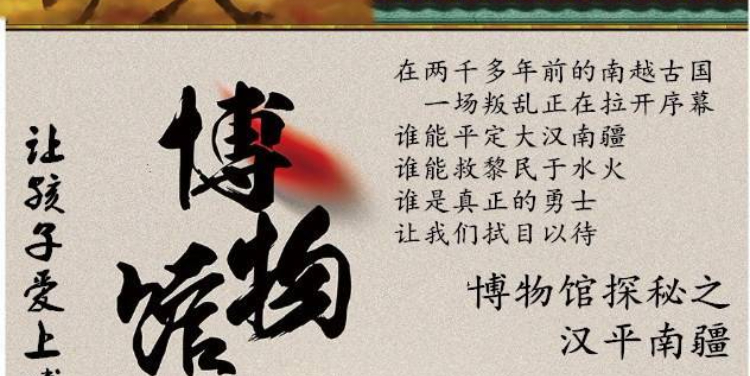 让孩子爱上
博物馆
在两千多年前的南越古国
一场叛乱正在拉开序幕
谁能平定大汉南疆
谁能救黎民于水火
谁是真正的勇士
让我们拭目以待
博物馆探秘之
汉平南疆